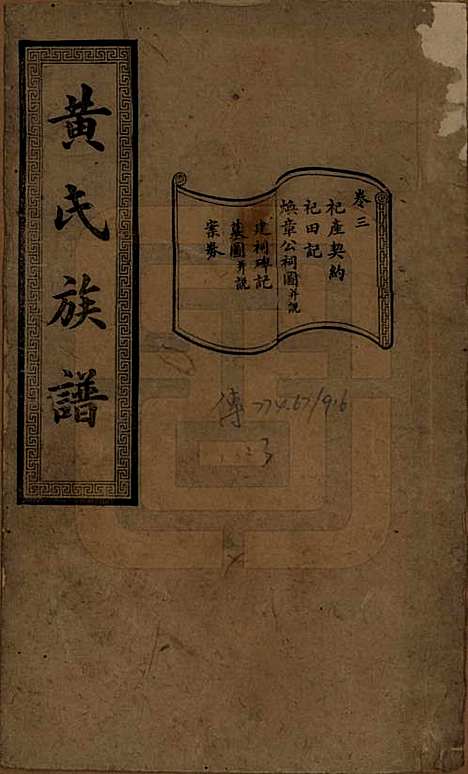 黃氏族譜
卷三
祀產契約
祀田記
煥章公祠圖并說
建祠碑記
墓圖并說
案券
傳774.67/916
:3